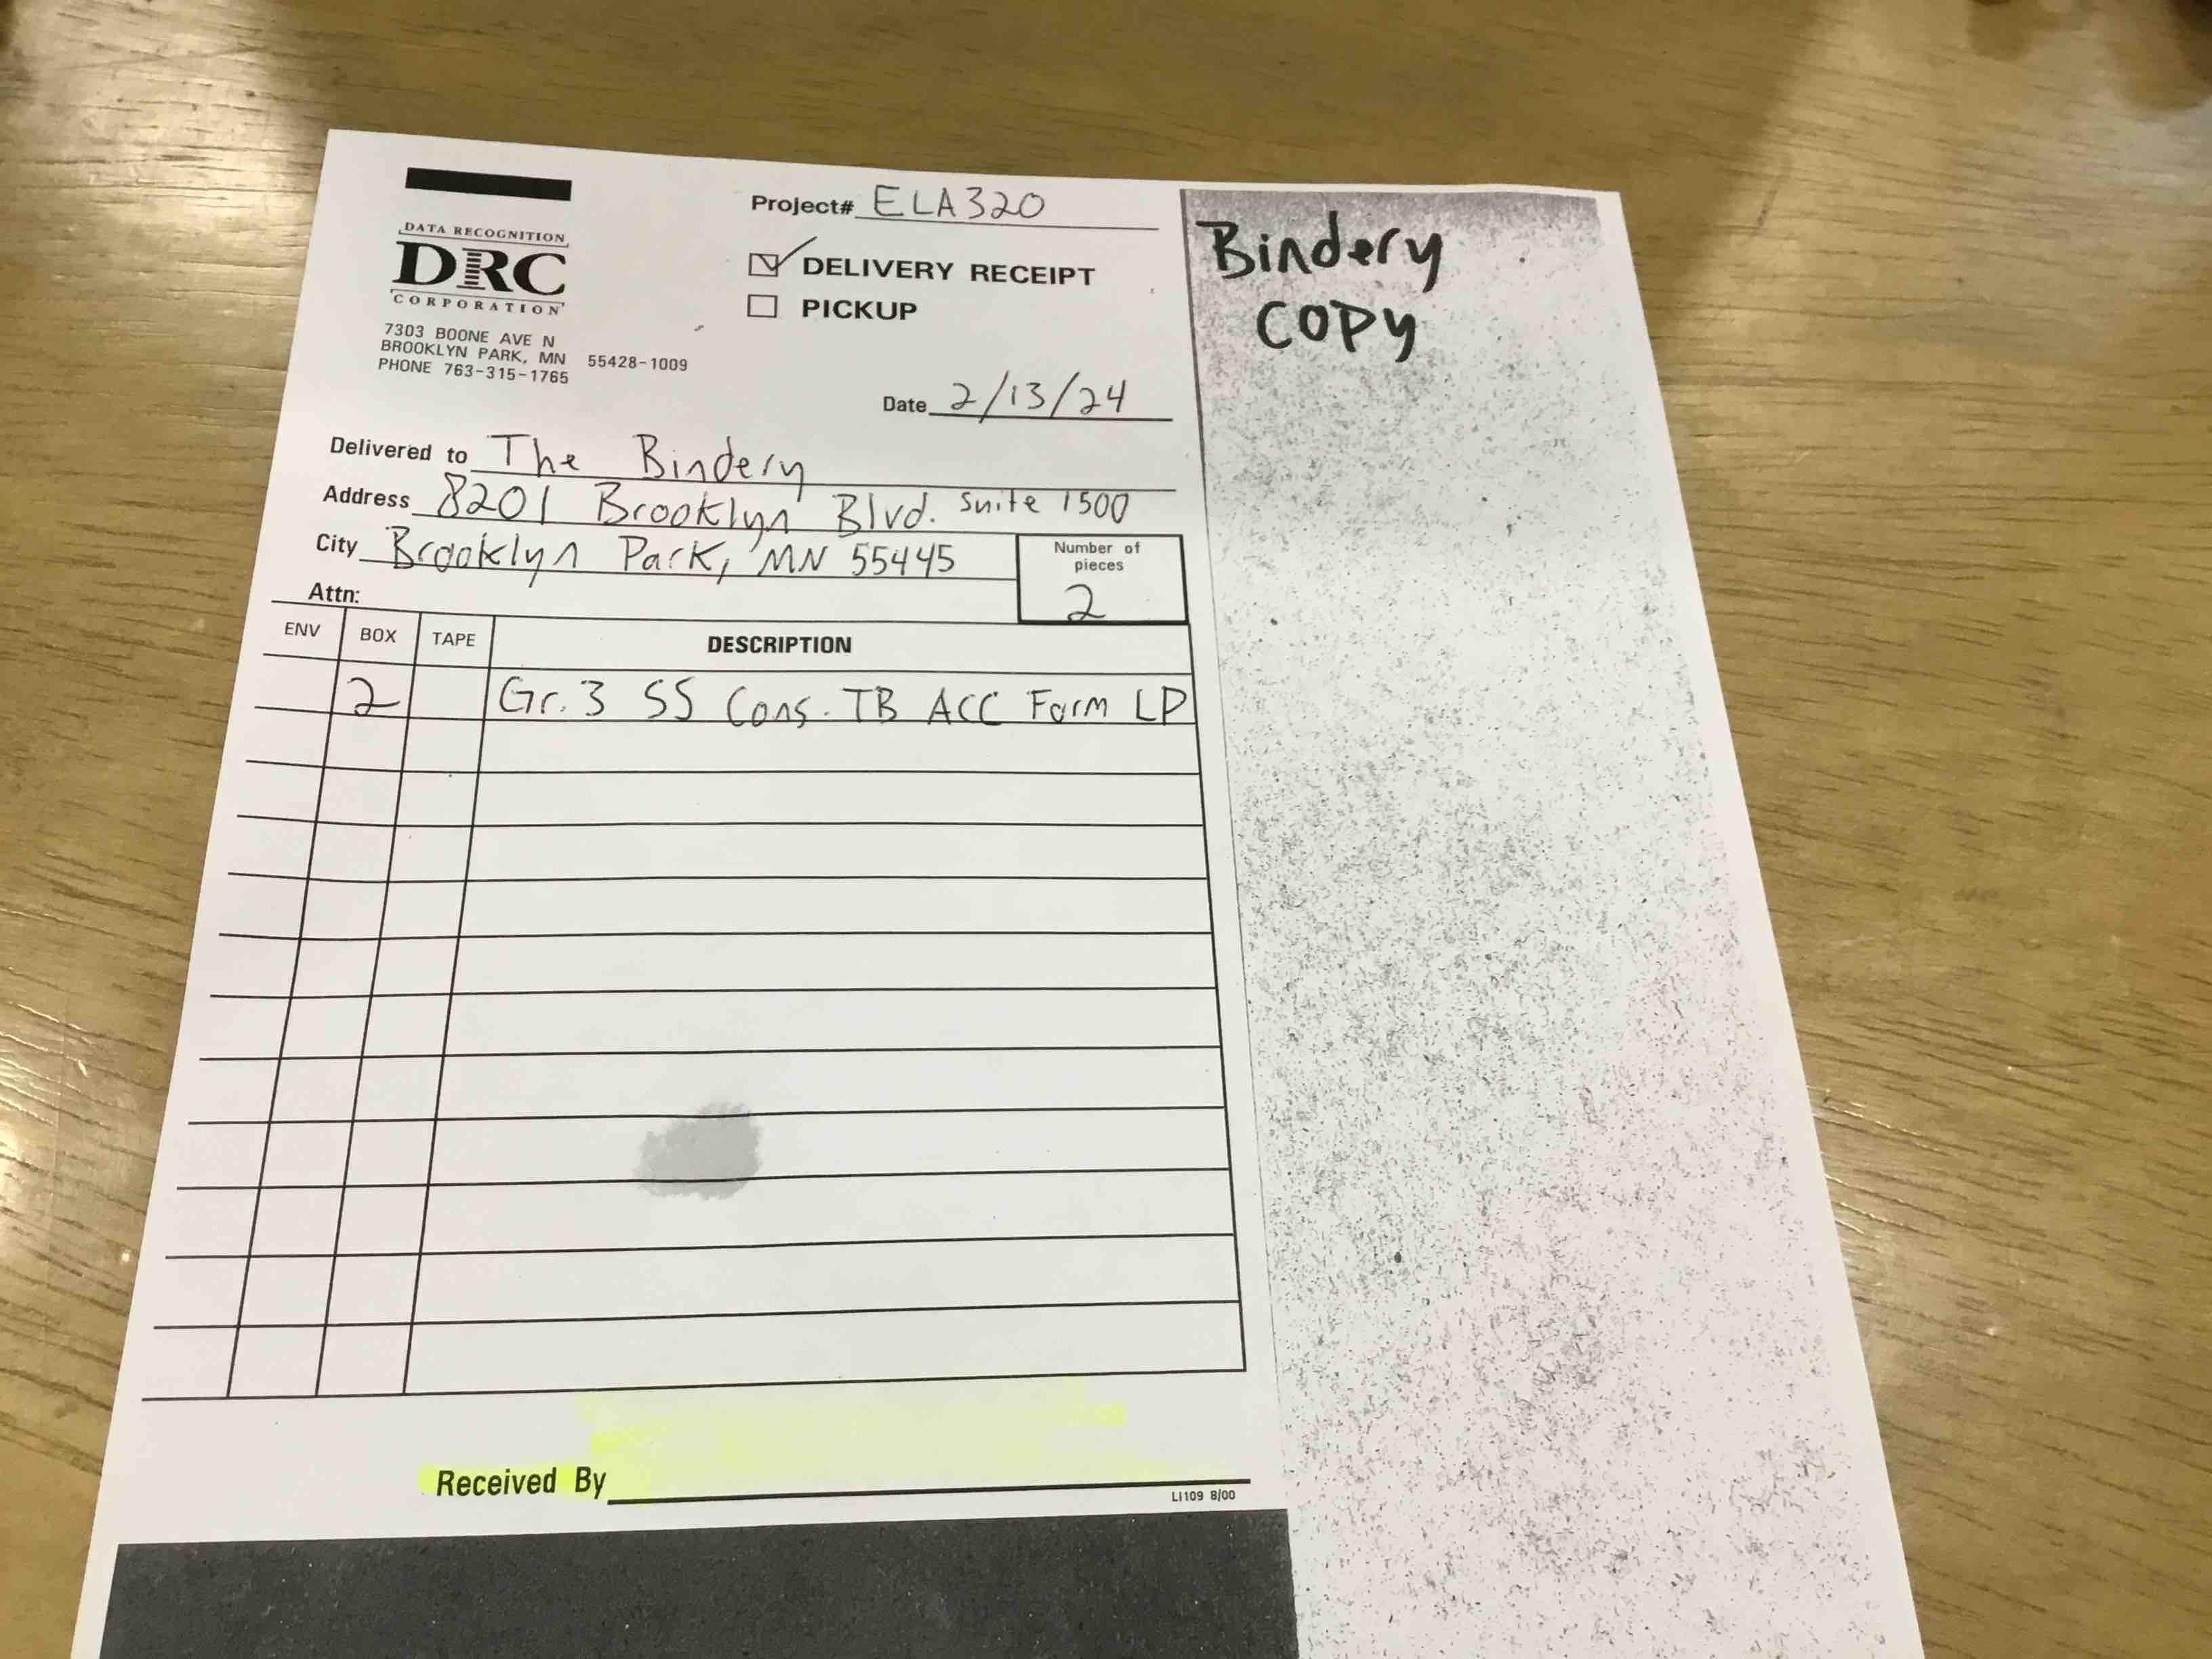 DATA RECOGNITION
DRC
CORPORATION
7303 BOONE AVE N
BROOKLYN PARK, MN 55428-1009
PHONE 763-315-1765
Project# ELA320
DELIVERY RECEIPT
PICKUP
Date 2/13/24
Bindery
COPY
Delivered to The Bindery
Address 8201 Brooklyn Blvd. Suite 1500
City Brooklyn Park, MN 55445
Number of
pieces
2
Attn:
ENV BOX TAPE DESCRIPTION
2 Gr. 3 SS Cons. TB ACC Form LP
Received By
LI109 8/00